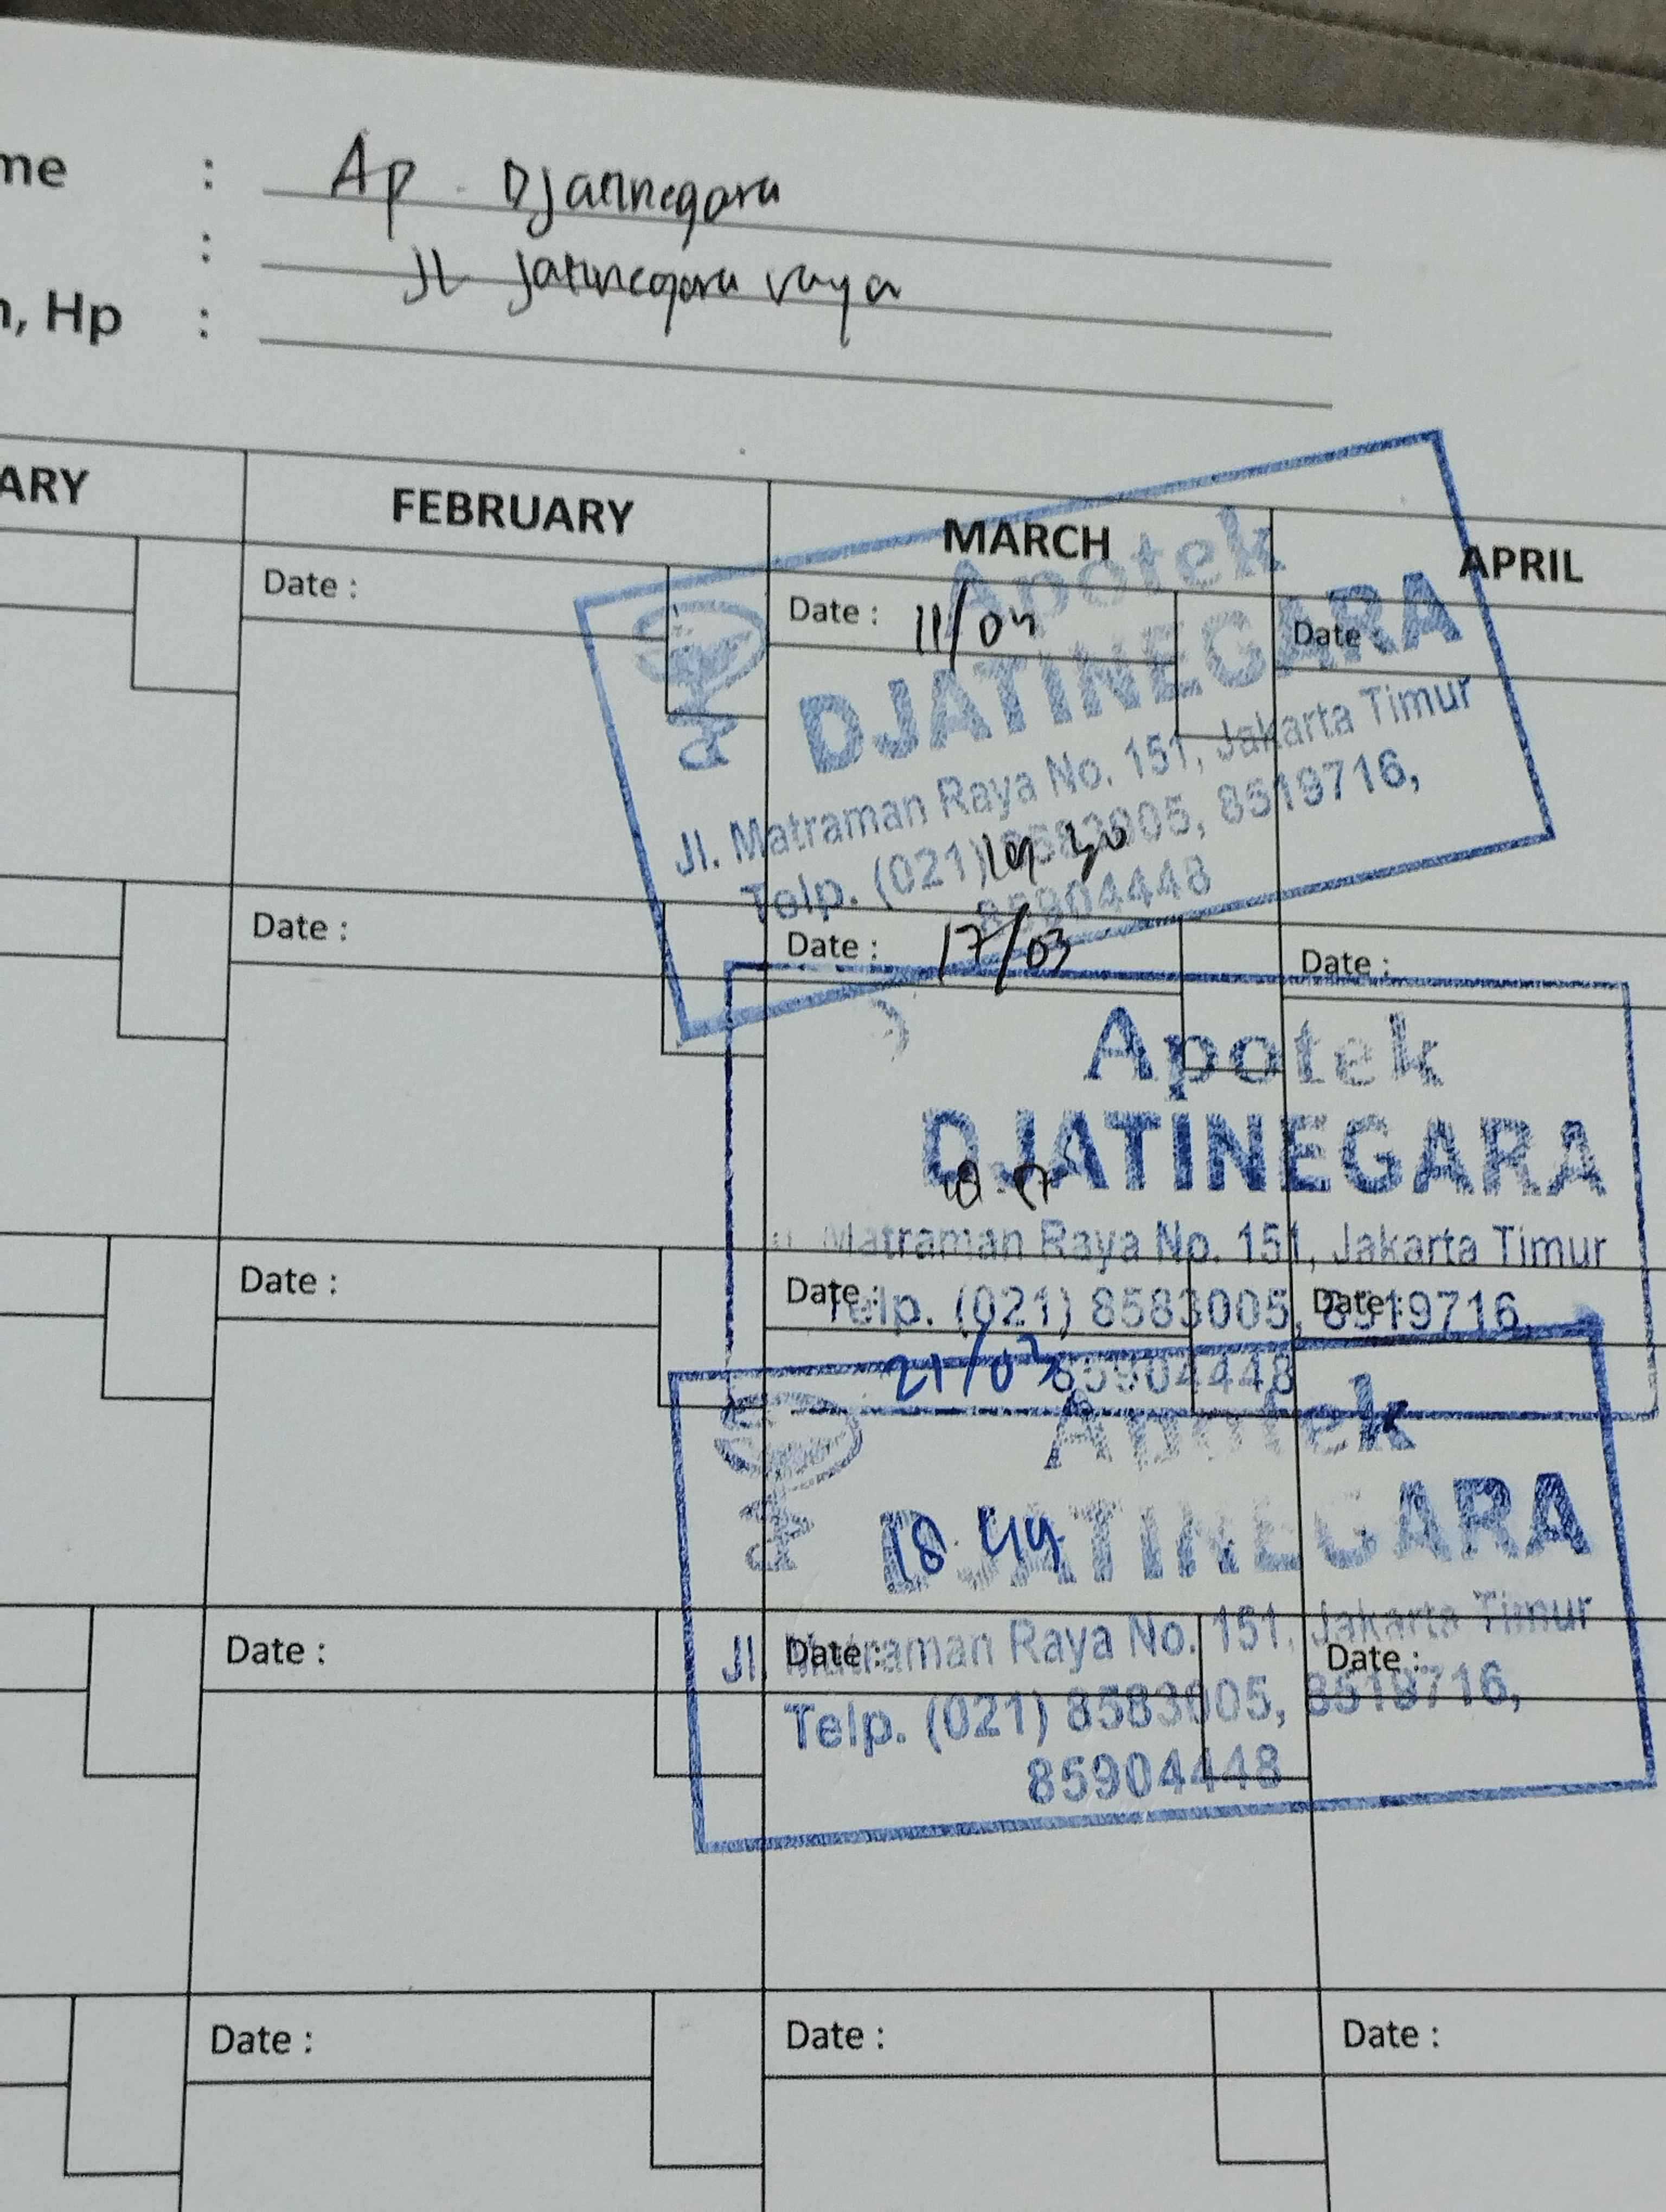 me : Ap. Djatinegara
: Jl Jatinegara raya
n, Hp :
ARY FEBRUARY MARCH APRIL
Date : Date : 11/03 Date :
Apotek
DJATINEGARA
Jl. Matraman Raya No. 151, Jakarta Timur
Telp. (021) 8583005, 8519716,
85904448
Date : Date : 17/03 Date :
Apotek
DJATINEGARA
Matraman Raya No. 151, Jakarta Timur
Date : Date : Date :
Telp. (021) 8583005, 8519716,
85904448
21/03
Apotek
DJATINEGARA
18.44
Jl. Matraman Raya No. 151, Jakarta Timur
Date : Date : Date :
Telp. (021) 8583005, 8519716,
85904448
Date : Date : Date :